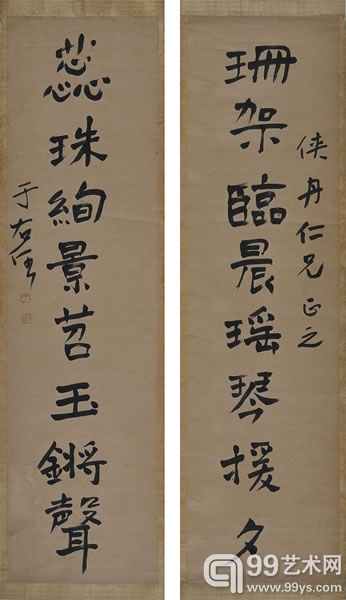 珊架臨晨瑶琴援夕
侠丹仁兄正之
蕊珠絢景苕玉鏘聲
于右任
99艺术网
www.99ys.com